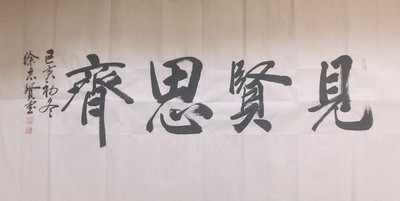 見賢思齊
己亥初冬
徐志賢书